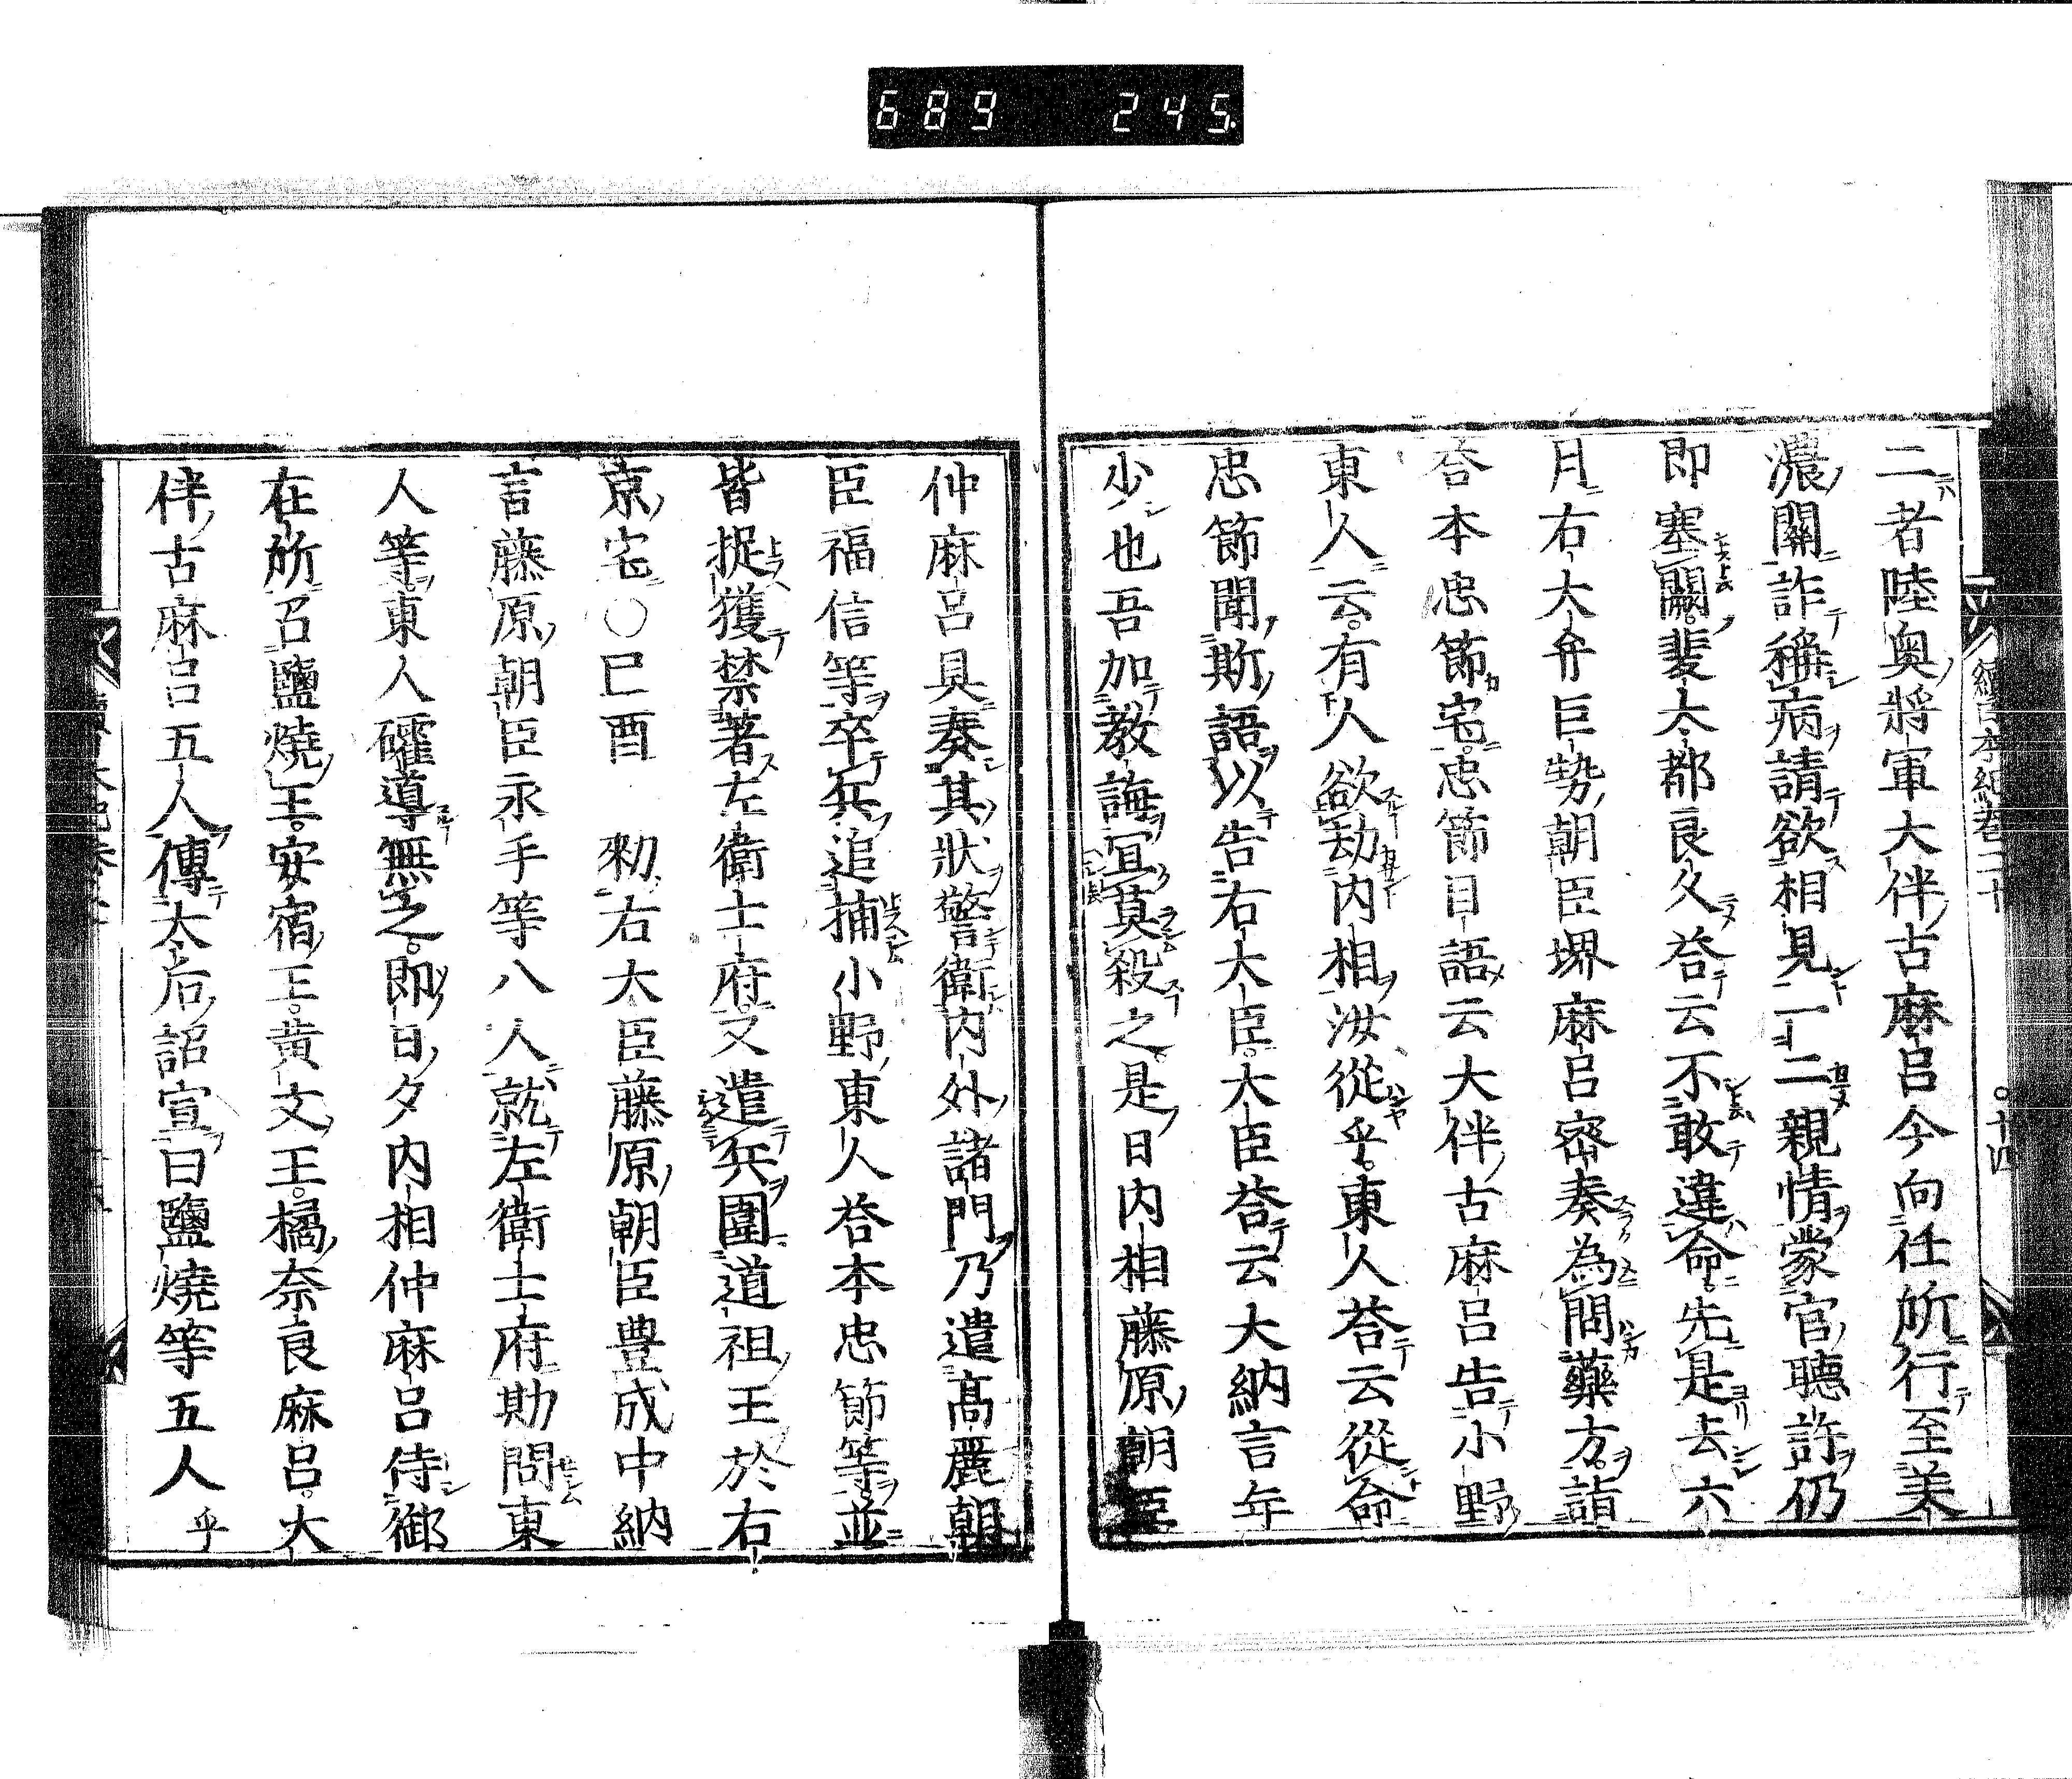 689 245
續日本紀卷二十 十四
二者陸奥將軍大伴古麻呂今向任所行至美
濃關詐稱病請欲相見一二親情蒙官聽許仍
即塞關裴太都良久荅云不敢違命先是去六
月右大弁巨勢朝臣堺麻呂密奏為問藥方詣
荅本忠節宅忠節目語云大伴古麻呂告小野
東人云有人欲劫内相汝從乎東人荅云從命
忠節聞斯語以告右大臣大臣荅云大納言年
少也吾加教誨宜莫殺之是日内相藤原朝臣
仲麻呂具奏其狀警衛内外諸門乃遣髙麗朝
臣福信等卒兵追捕小野東人荅本忠節等並
皆捉獲禁著左衛士府又遣兵圍道祖王於右
京宅○已酉 勑右大臣藤原朝臣豊成中納
言藤原朝臣永手等八人就左衛士府勘問東
人等東人確導無之即日夕内相仲麻呂侍御
在所召鹽燒王安宿王黄文王橘奈良麻呂大
伴古麻呂五人傳太后詔宣曰鹽燒等五人乎